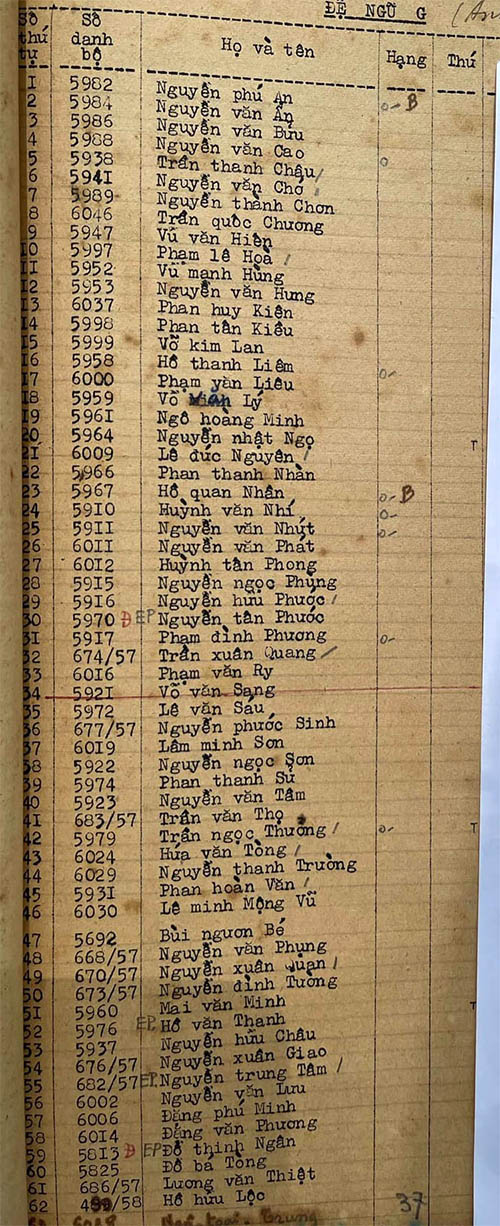 ĐỆ NGŨ G (An
Số thứ tự Số danh bộ Họ và tên Hạng Thứ
1 5982 Nguyễn phú An
2 5984 Nguyễn văn Ẩn o- B
3 5986 Nguyễn văn Bửu
4 5988 Nguyễn văn Cao
5 5938 Trần thanh Châu/ o
6 5941 Nguyễn văn Chớ
7 5989 Nguyễn thành Chơn
8 6046 Trần quốc Chương
9 5947 Vũ văn Hiên
10 5997 Phạm lê Hoà /
11 5952 Vũ mạnh Hùng
12 5953 Nguyễn văn Hưng
13 6037 Phan huy Kiên
14 5998 Phan tấn Kiều
15 5999 Võ kim Lan
16 5958 Hồ thanh Liêm
17 6000 Phạm yản Liêu o-
18 5959 Võ văn Lý
19 5961 Ngô hoàng Minh
20 5964 Nguyễn nhật Ngọ T
21 6009 Lê đức Nguyên /
22 5966 Phan thanh Nhàn
23 5967 Hồ quan Nhân o- B
24 5910 Huỳnh văn Nhí o-
25 5911 Nguyễn văn Nhựt o-
26 6011 Nguyễn văn Phát
27 6012 Huỳnh tấn Phong
28 5915 Nguyễn ngọc Phụng
29 5916 Nguyễn hữu Phước /
30 5970 Đ EP Nguyễn tấn Phước
31 5917 Phạm đình Phương o-
32 674/57 Trần xuân Quang /
33 6016 Phạm văn Ry
34 5921 Võ văn Sang
35 5972 Lê văn Sáu
36 677/57 Nguyễn phước Sinh
37 6019 Lâm minh Sơn
38 5922 Nguyễn ngọc Sơn
39 5974 Phan thanh Sử
40 5923 Nguyễn văn Tâm
41 683/57 Trần văn Thọ
42 5979 Trần ngọc Thương / o- T
43 6024 Hứa văn Tòng /
44 6029 Nguyễn thanh Trường
45 5931 Phan hoàn Văn /
46 6030 Lê minh Mộng Vũ
47 5692 Bùi ngươn Bé
48 668/57 Nguyễn văn Phụng
49 670/57 Nguyễn xuân Quan /
50 673/57 Nguyễn đình Tường
51 5960 Mai văn Minh T
52 5976 EP. Hồ văn Thanh
53 5937 Nguyễn hữu Châu
54 676/57 Nguyễn xuân Giao
55 682/57 EP. Nguyễn trung Tâm /
56 6002 Nguyễn văn Lưu
57 6006 Đặng phú Minh
58 6014 Đặng văn Phương
59 5813 Đ EP Đỗ thịnh Ngân
60 5825 Đỗ bá Tòng
61 686/57 Lương văn Thiệt
62 499/58 Hồ hữu Lộc 37